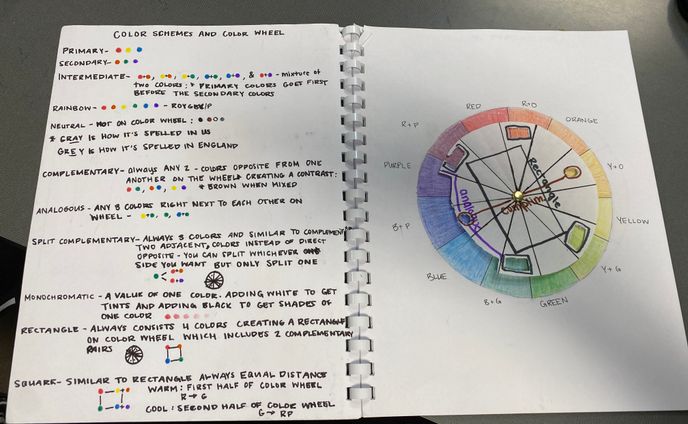 COLOR SCHEMES AND COLOR WHEEL
PRIMARY-
SECONDARY-
INTERMEDIATE- , , , , , & - mixture of
TWO COLORS: * PRIMARY COLORS GOES FIRST
BEFORE THE SECONDARY COLORS
RAINBOW- - ROYGB/P
NEUTRAL - NOT ON COLOR WHEEL:
* GRAY IS HOW IT'S SPELLED IN US
GREY IS HOW IT'S SPELLED IN ENGLAND
COMPLEMENTARY - always ANY 2 - COLORS OPPOSITE FROM ONE
ANOTHER ON THE WHEEL CREATING A CONTRAST:
, , * BROWN WHEN MIXED
ANALOGOUS - ANY 3 COLORS RIGHT NEXT TO EACH OTHER ON
WHEEL -
SPLIT COMPLEMENTARY - ALWAYS 3 COLORS AND SIMILAR TO COMPLEMENT
TWO ADJACENT COLORS INSTEAD OF DIRECT
OPPOSITE - YOU CAN SPLIT WHICHEVER
SIDE YOU WANT BUT ONLY SPLIT ONE
MONOCHROMATIC - A VALUE OF ONE COLOR. ADDING WHITE TO GET
TINTS AND ADDING BLACK TO GET SHADES
OF ONE COLOR
RECTANGLE - ALWAYS CONSISTS 4 COLORS CREATING A RECTANGLE
ON COLOR WHEEL WHICH INCLUDES 2 COMPLEMENTARY
PAIRS
SQUARE- SIMILAR TO RECTANGLE ALWAYS EQUAL DISTANCE
WARM: FIRST HALF OF COLOR WHEEL
R → G
COOL: SECOND HALF OF COLOR WHEEL
G → RP
RED
R+O
ORANGE
R+P
PURPLE
Y+O
YELLOW
B+P
BLUE
Y+G
B+G
GREEN
Rectangle